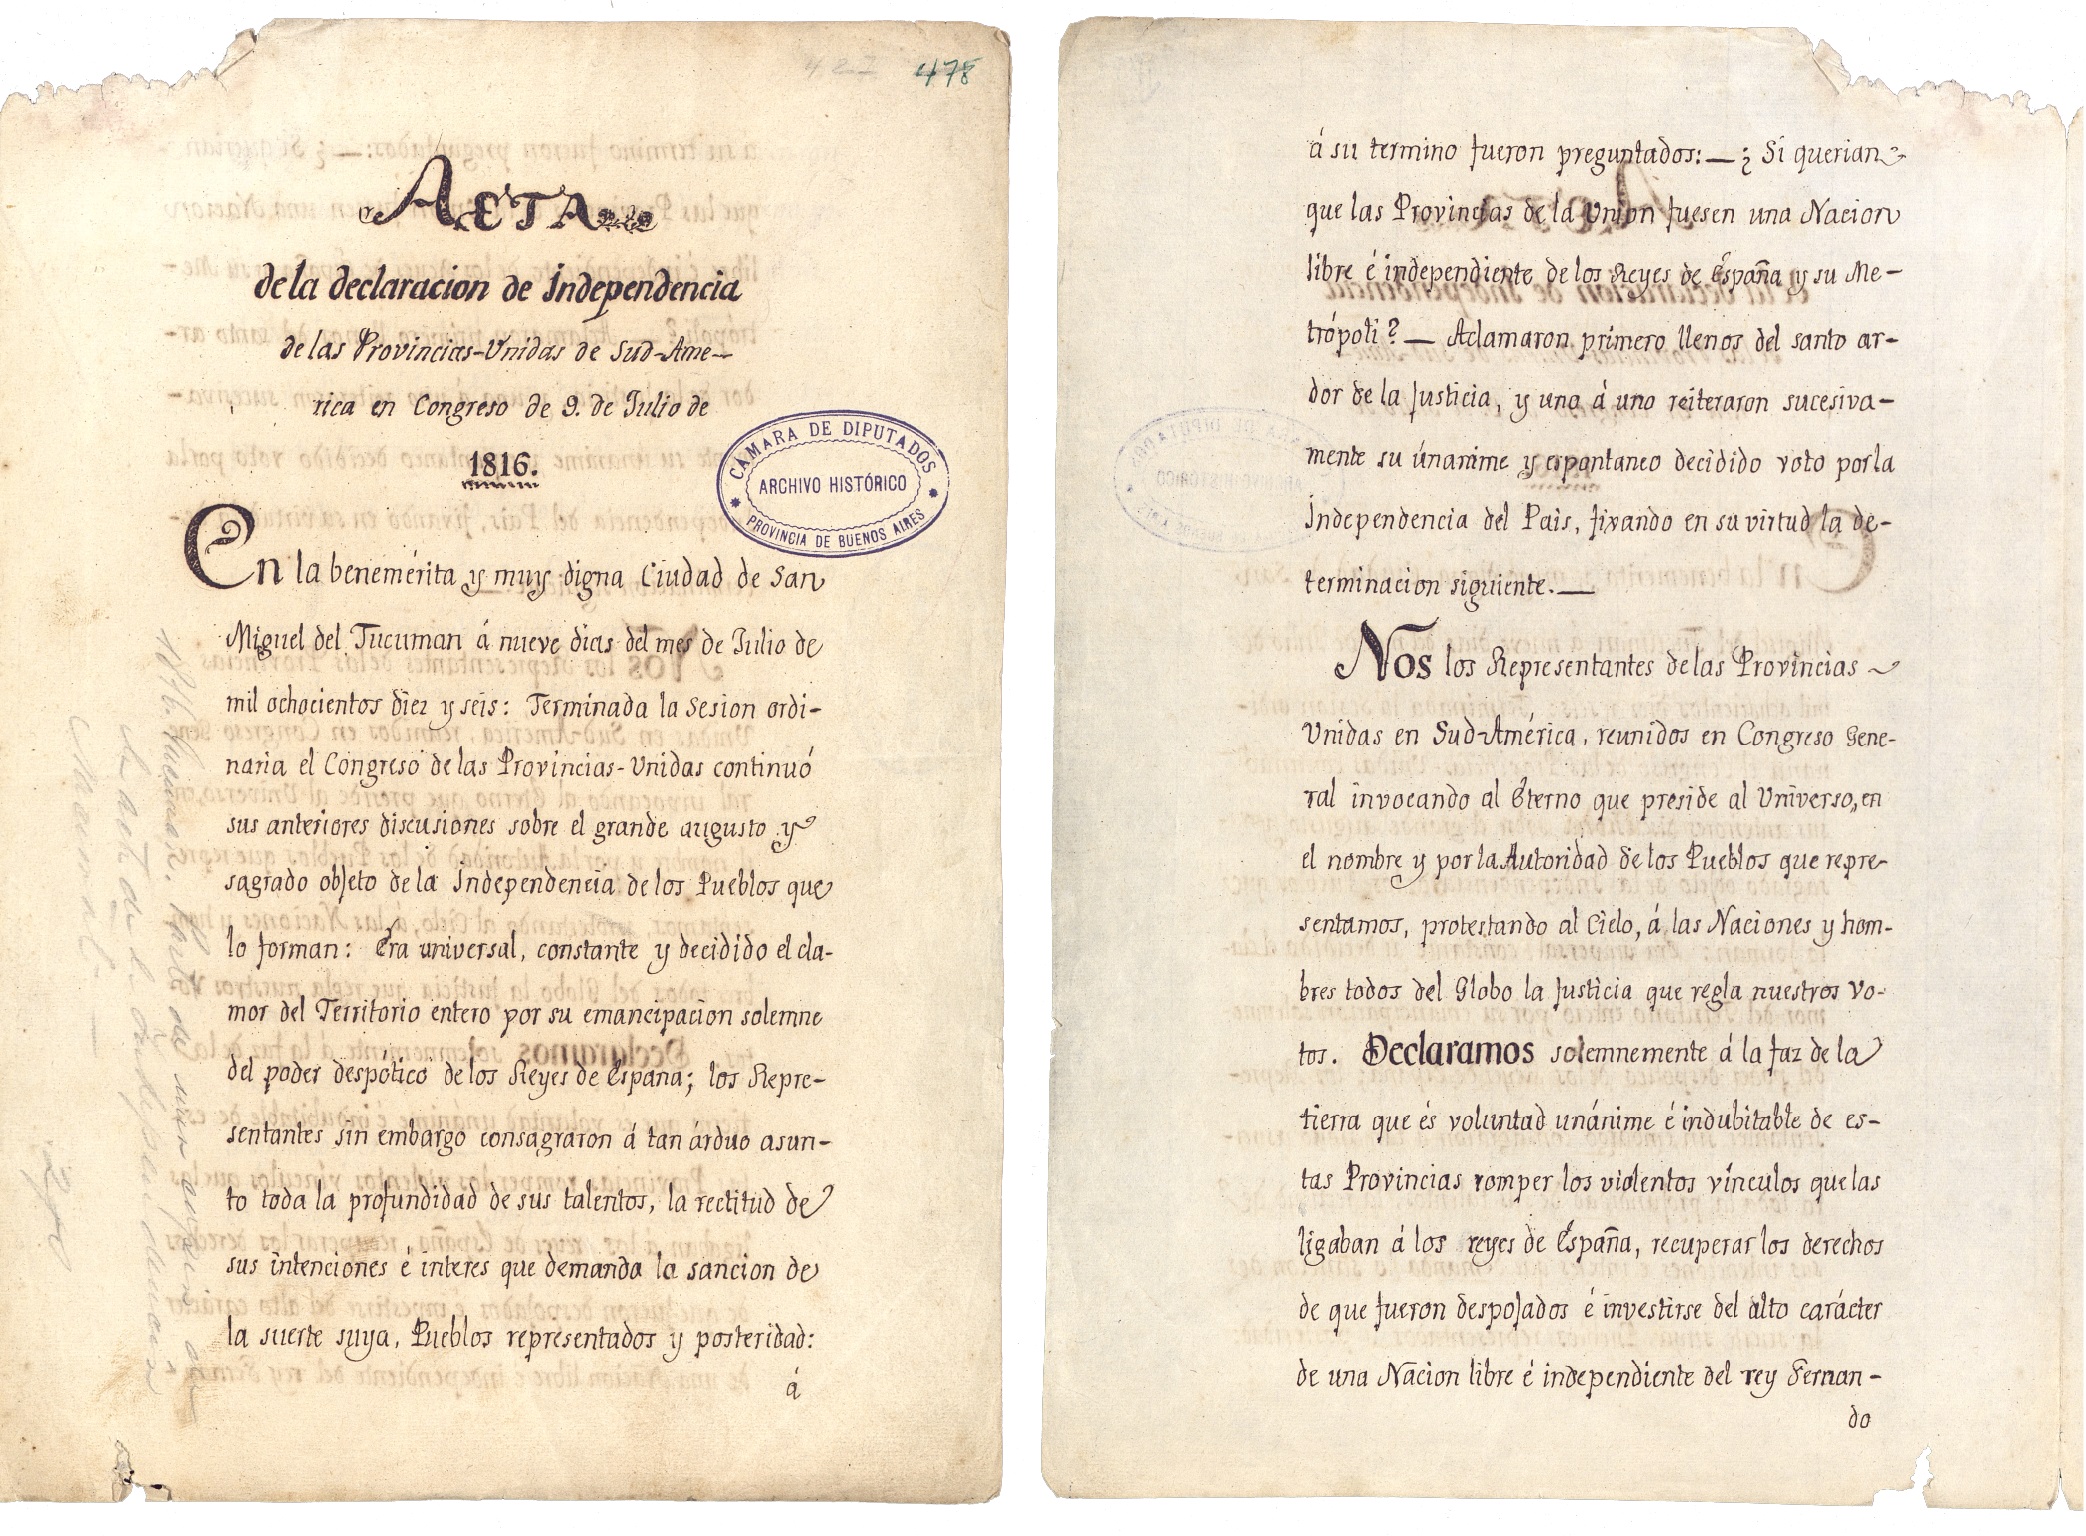 478
ACTA
de la declaracion de Independencia
de las Provincias-Unidas de Sud-Ame-
rica en Congreso de 9. de Julio de
1816.
CÁMARA DE DIPUTADOS
ARCHIVO HISTÓRICO
PROVINCIA DE BUENOS AIRES
En la benemérita y muy digna Ciudad de San
Miguel del Tucuman á nueve dias del mes de Julio de
mil ochocientos diez y seis: Terminada la Sesion ordi-
naria el Congreso de las Provincias-Unidas continuó
sus anteriores discusiones sobre el grande augusto y
sagrado objeto de la Independencia de los Pueblos que
lo forman: Era universal, constante y decidido el cla-
mor del Territorio entero por su emancipacion solemne
del poder despótico de los Reyes de España; los Repre-
sentantes sin embargo consagraron á tan árduo asun-
to toda la profundidad de sus talentos, la rectitud de
sus intenciones é interes que demanda la sancion de
la suerte suya, Pueblos representados y posteridad:
á
á su termino fueron preguntados:— ¿ Si querian
que las Provincias de la Union fuesen una Nacion
libre é independiente de los Reyes de España y su Me-
trópoli? — Aclamaron primero llenos del santo ar-
dor de la Justicia, y uno á uno reiteraron sucesiva-
mente su únanime y espontaneo decidido voto por la
Independencia del Pais, fixando en su virtud la de-
terminacion siguiente.—
Nos los Representantes de las Provincias
Unidas en Sud-América, reunidos en Congreso Gene-
ral invocando al Eterno que preside al Universo, en
el nombre y por la Autoridad de los Pueblos que repre-
sentamos, protestando al Cielo, á las Naciones y hom-
bres todos del Globo la Justicia que regla nuestros vo-
tos. Declaramos solemnemente á la faz de la
tierra que és voluntad unánime é indubitable de es-
tas Provincias romper los violentos vínculos que las
ligaban á los reyes de España, recuperar los derechos
de que fueron despojados é investirse del alto carácter
de una Nacion libre é independiente del rey Fernan-
do